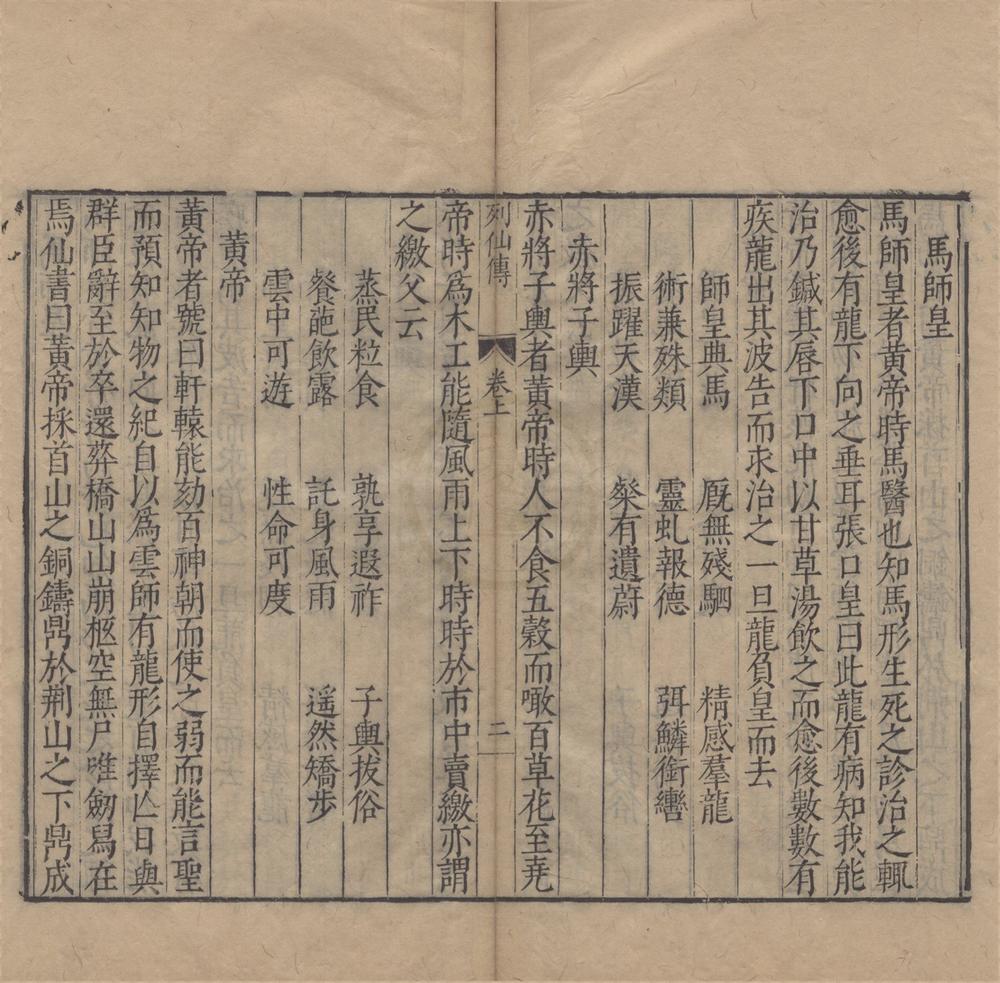 馬師皇
馬師皇者黃帝時馬醫也知馬形生死之診治之輒
愈後有龍下向之垂耳張口皇曰此龍有病知我能
治乃鍼其唇下口中以甘草湯飲之而愈後數數有
疾龍出其波告而求治之一旦龍負皇而去
師皇典馬　廐無殘駟　精感羣龍
術兼殊類　靈虬報德　弭鱗銜轡
振躍天漢　粲有遺蔚
赤將子輿
赤將子輿者黃帝時人不食五穀而噉百草花至堯
列仙傳　卷上　二
帝時爲木工能隨風雨上下時時於市中賣繳亦謂
之繳父云
蒸民粒食　孰享遐祚　子輿拔俗
餐葩飲露　託身風雨　遥然矯步
雲中可遊　性命可度
黃帝
黃帝者號曰軒轅能劾百神朝而使之弱而能言聖
而預知知物之紀自以爲雲師有龍形自擇亾日與
群臣辭至於卒還葬橋山山崩柩空無尸唯劒舄在
焉仙書曰黃帝採首山之銅鑄鼎於荆山之下鼎成